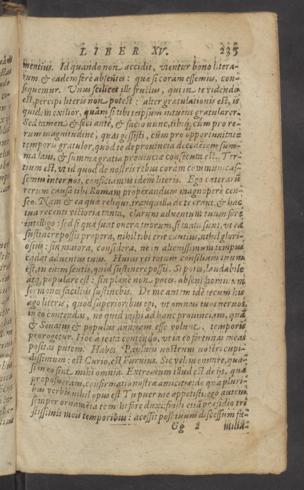 LIBER XV. 235
mentius. Id quando non accidit, utentur bono litera-
rum & eadem fere absentes: quæ si coram essemus, con-
sequemur. Unus scilicet ille fructus, qui in te videndo
est, percipi literis non potest: alter gratulationis est, is
quidem exilior, quàm si tibi teipsum intuens gratularer,
sed tamen & feci antè, & facio nunc, tibíq; cùm pro re-
rum magnitudine, quas gessisti, cùm pro opportunitate
temporis gratulor, quod te de provincia decedentem sum-
ma laus, & summa gratia provinciæ consecuta est. Ter-
tium est, ut id quod de nostris rebus coram communicas-
semus inter nos, conficiamus idem literis. Ego cætera-
rerum causa tibi Romam properandum magnopere cen-
seo. Nam & ea quæ reliqui, tranquilla de te erant, & hac
tua recenti victoria tanta, clarum adventum tuum fore
intelligo: sed si quæ sunt onera tuorum, si tanta sunt, ut ea
sustinere possis propera, nihil tibi erit lautius, nihil glorio-
sius: sin maiora, considera, ne in alienissimum tempus
cadat adventus tuus. Huius rei totum consilium tuum
est, tu enim scis, quid sustinere possis. Si potes, laudabile
atq; populare est: sin planè non potes, absens hominum ser-
mones faciliùs sustinebis. De me autem idem tecum his
ago literis, quod superioribus egi, ut omneis tuos nervos
in eo contendas, ne quid mihi ad hanc provinciam, quam
& Senatus & populus annuam esse voluit, temporis
prorogetur. Hoc à te ita contendo, ut in eo fortunas meas
positas putem. Habes Paulum nostrum nostri cupi-
dissimum: est Curio, est Furnius. Sic velim enitare, qua-
si in eo sint mihi omnia. Extremum illud est de iis, quæ
proposueram, confirmatio nostræ amicitiæ: de qua pluri-
bus verbis nihil opus est. Tu puer me appetisti: ego autem
semper ornamento te mihi fore duxi: fuisti etiam præsidio tri-
stissimis meis temporibus: accessit post tuum discessum fa-
Gg 2 milia-